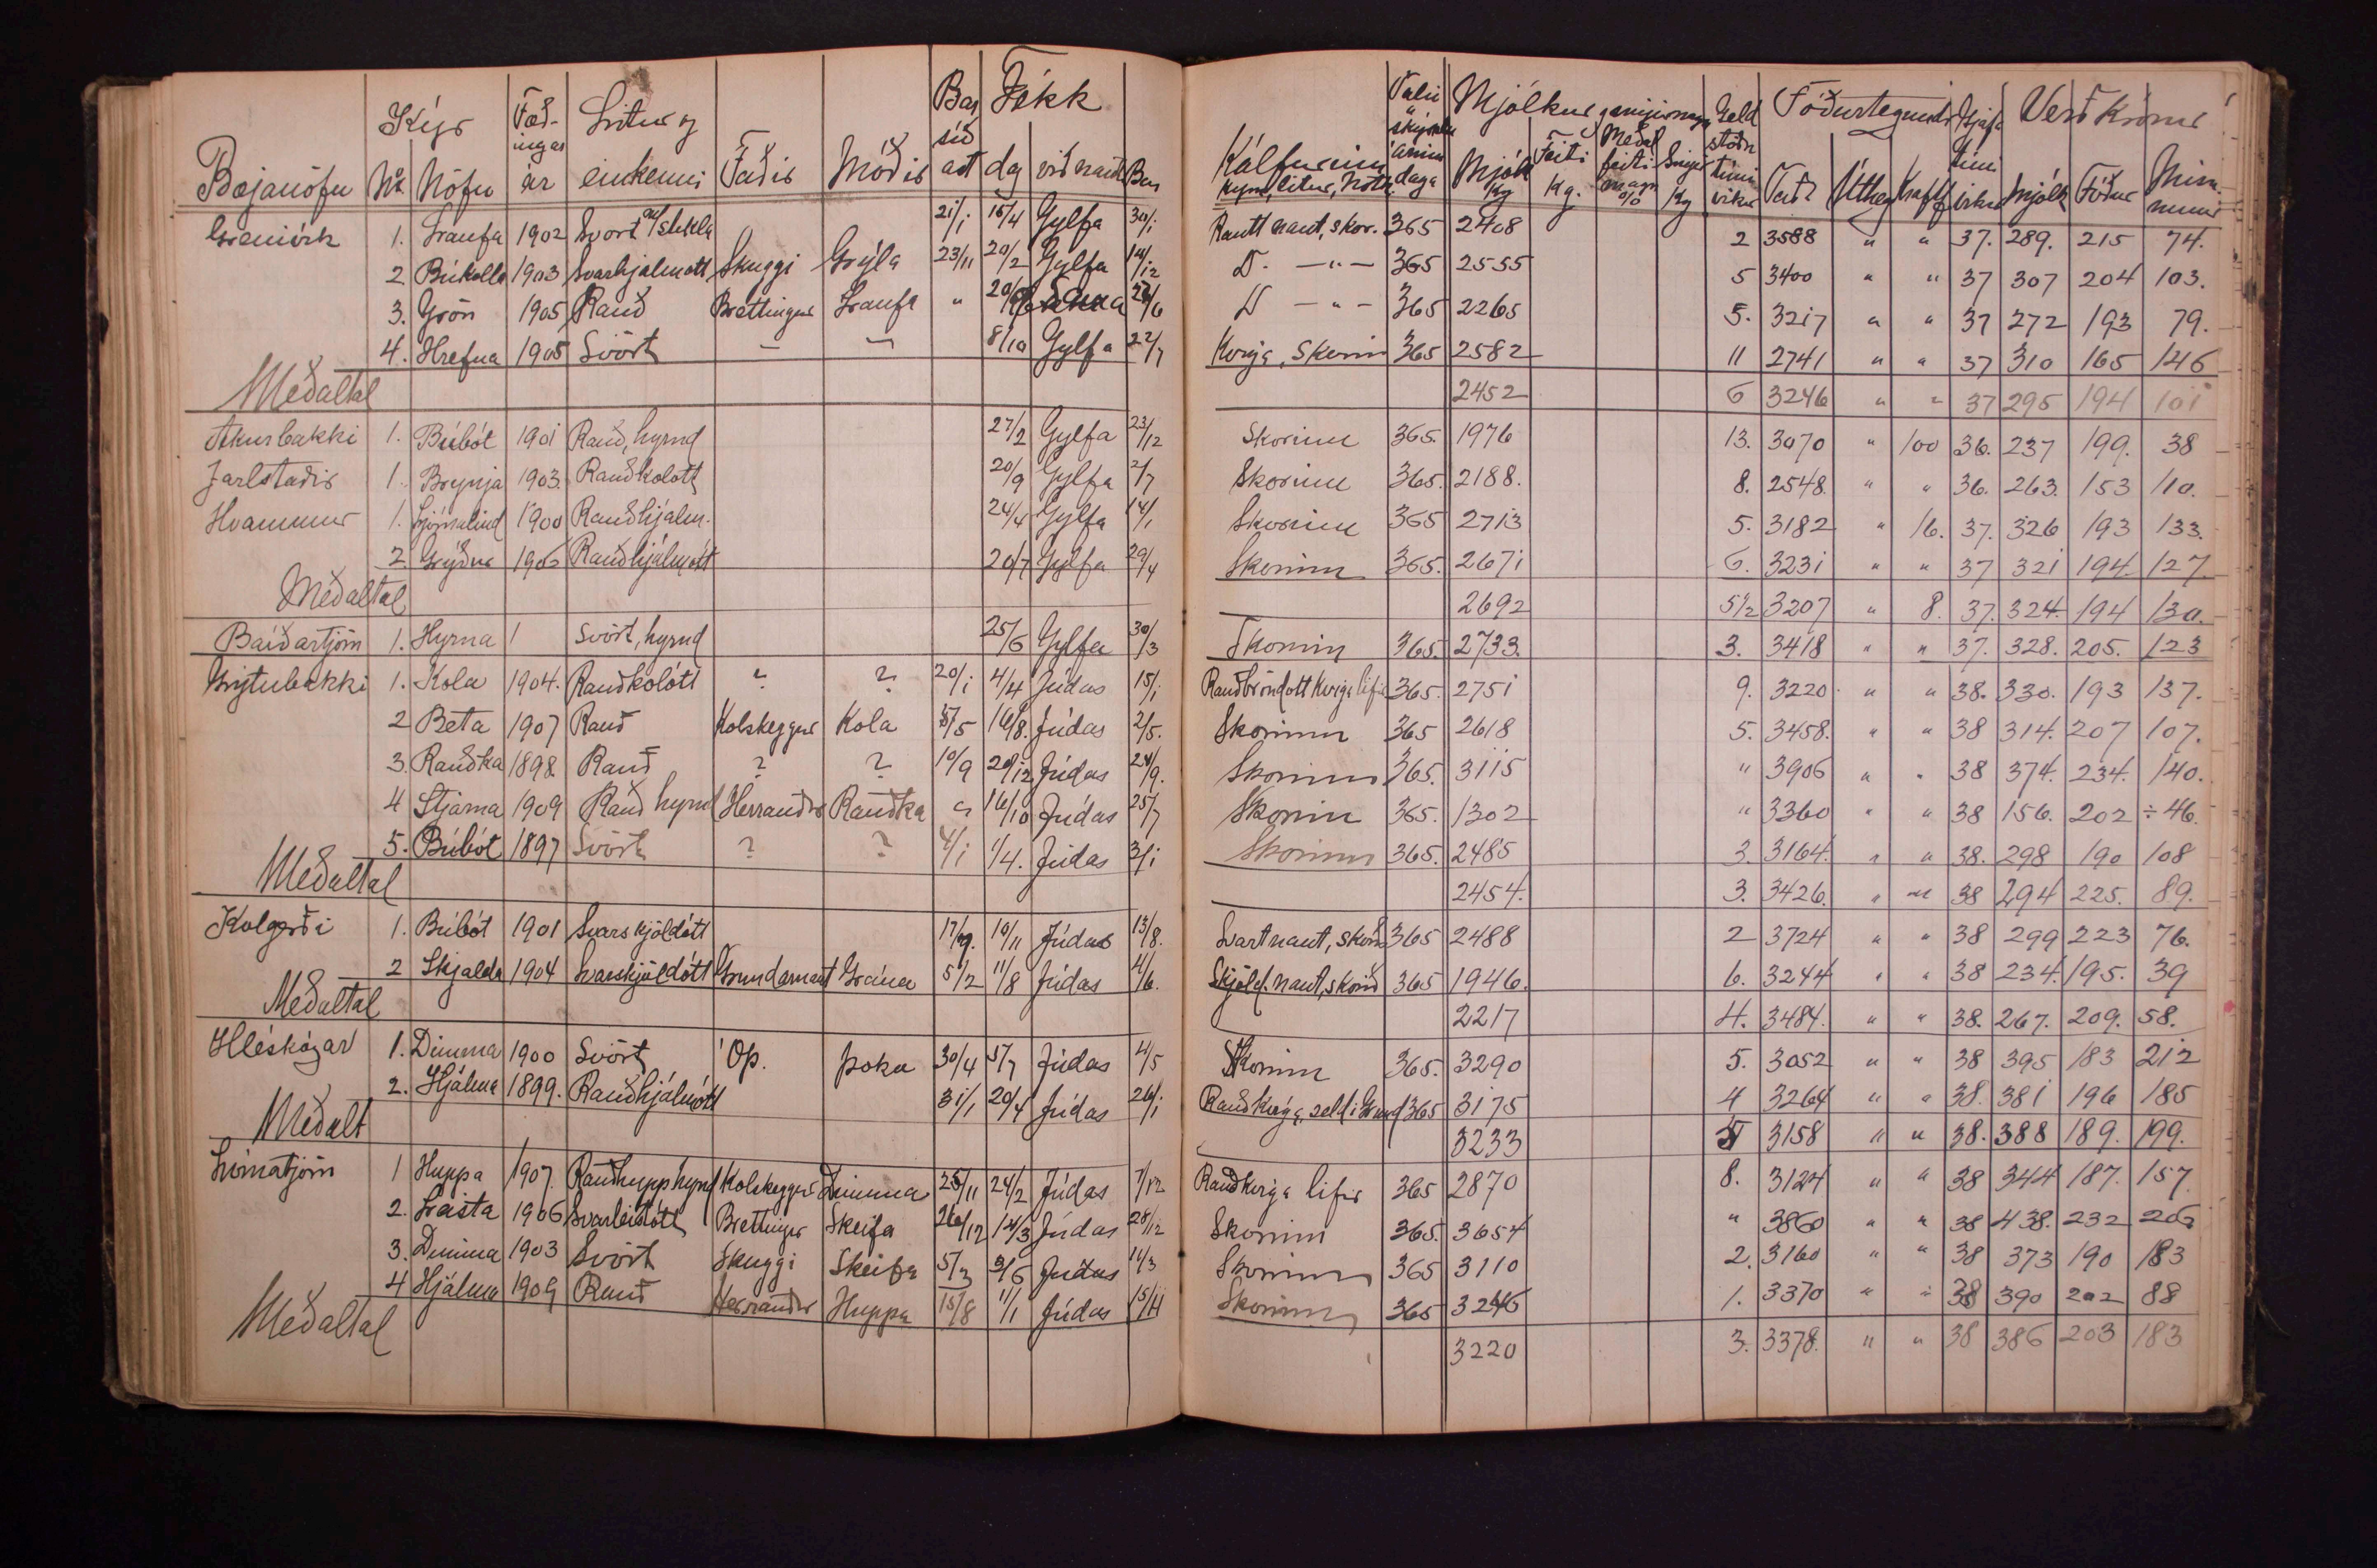 Kýr Fæð- Litur og Bar Fékk
ingar síð
Bæjanöfn No Nöfn ár einkenni Faðir Móðir ast dag við naut Bar
Grenivík 1. Laufa 1902 Svört 21/1 15/4 Gylfa 30/1
2 Búkolla 1903 Svarhjálmótt Skuggi Grýla 23/11 20/2 Gylfa 14/12
3. Grön 1905 Rauð Brettingur Laufa " 26/6
4. Hrefna 1905 Svört — — 8/10 Gylfa 22/7
Meðaltal
Akurbakki 1. Búbót 1901 Rauð, hyrnd 27/2 Gylfa 23/12
Jarlstaðir 1. Brynja 1903. Rauðkolótt 20/9 Gylfa 2/7
Hvammur 1. 1900 Rauðhjálm. 24/4 Gylfa 14/1
2 Grýðna 1906 Rauðhjálmótt 20/7 Gylfa 29/4
Meðaltal
1. Hyrna 1 Svört, hyrnd 25/6 Gylfa 30/3
Grýtubakki 1. Kola 1904. Rauðkolótt ? ? 20/1 4/4 Júdas 15/1
2 Beta 1907 Rauð Kolskeggur Kola 5/5 16/8. Júdas 2/5.
3. Rauðka 1898 Rauð ? ? 10/9 20/12 Júdas 24/9.
4 Stjarna 1909 Rauð hyrnd Herrauður Rauðka " 16/10 Júdas 25/7
5. Búbót 1897 Svört ? ? 4/1 1/4. Júdas 3/1
Meðaltal
Kolgerði 1. Búbót 1901 Svarskjöldótt 17/9. 10/11 Júdas 13/8.
2 Skjalda 1904 Svarskjöldótt Grundarnaut Grána 5/2 11/8 Júdas 4/6.
Meðaltal
Hléskógar 1. Dimma 1900 Svört Óp. Þoka 30/4 5/7 Júdas 4/5
2. Hjálma 1899. Rauðhjálmótt 31/1 20/4 Júdas 26/1
Meðalt
Lómatjörn 1 Huppa 1907. Rauðhupp hyrnd Kolskeggur Dimma 25/11 24/2 Júdas 7/12
2. 1906 Brettingur Skeifa 26/12 14/3 Júdas 28/12
3. Dimma 1903 Svört Skuggi Skeifa 5/3 3/6 Júdas 14/3
4 Hjálma 1909 Rauð Herrauður Huppa 15/8 1/1 Júdas 15/11
Meðaltal
Mjólkur Geld Fóðurtegundir Gjafa Verð Krónur
Kálfurinn árinu Feiti Meðal stöðu tími Mis-
kyn, litur, daga Mjólk Kg Kg. feiti % Kg vikur Taða Úthey Kraftf vikur Mjólk Fóður munur
Rautt naut, skor. 365 2408 2 3588 " " 37. 289. 215 74.
D. —"— 365 2555 5 3400 " " 37 307 204 103.
D —"— 365 2265 5. 3217 " " 37 272 193 79.
Kvíga, Skorin 365 2582 11 2741 " " 37 310 165 146
2452 6 3246 " " 37 295 194 101
Skorinn 365. 1976 13. 3070 " 100 36. 237 199. 38
Skorinn 365. 2188. 8. 2548. " " 36. 263. 153 110.
Skorinn 365 2713 5. 3182 " 16. 37. 326 193 133.
Skorinn 365. 2671 6. 3231 " " 37 321 194. 127.
2692 5½ 3207 " 8. 37. 324. 194 130.
Skorinn 365. 2733. 3. 3418 " " 37. 328. 205. 123
Rauðbröndótt Kvíga lifir 365. 2751 9. 3220. " " 38. 330. 193 137.
Skorinn 365 2618 5. 3458. " " 38 314. 207 107.
Skorinn 365. 3115 " 3906 " " 38 374. 234. 140.
Skorinn 365. 1302 " 3360 " " 38 156. 202 ÷46.
Skorinn 365. 2485 3. 3164. " " 38. 298 190 108
2454. 3. 3426. " " 38 294 225. 89.
Svart naut, skorið 365 2488 2 3724 " " 38 299 223 76.
Skjöld. naut, skorið 365 1946. 6. 3244 " " 38 234. 195. 39
2217 4. 3484. " " 38. 267. 209. 58.
Skorinn 365. 3290 5. 3052 " " 38 395 183 212
Rauð kvíga, seld í Grund 365 3175 4 3264 " " 38. 381 196 185
3233 5 3158 " " 38. 388 189. 199.
Rauð kvíga lifir 365 2870 8. 3124 " " 38 344 187. 157
Skorinn 365. 3654 " 3860 " " 38 438. 232 206
Skorinn 365 3110 2. 3160 " " 38 373 190 183
Skorinn 365 3246 1. 3370 " " 38 390 202 88
3220 3. 3378. " " 38 386 203 183